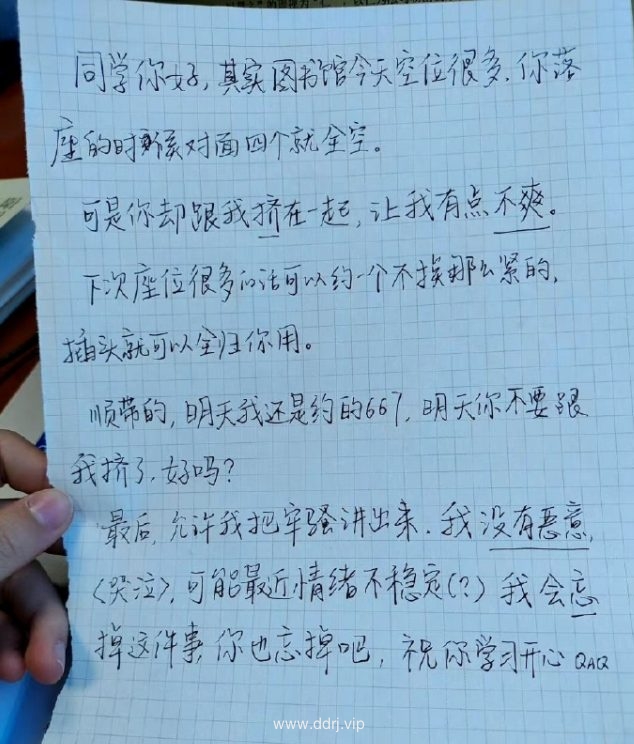 同学你好,其实图书馆今天空位很多.你落
座的时候对面四个就全空。
可是你却跟我挤在一起,让我有点不爽。
下次座位很多的话可以约一个不挨那么紧的,
插头就可以全归你用。
顺带的,明天我还是约的667,明天你不要跟
我挤了.好吗?
最后,允许我把牢骚讲出来.我没有恶意
〈哭泣〉,可能最近情绪不稳定(?)我会忘
掉这件事,你也忘掉吧,祝你学习开心 QAQ
www.ddrj.vip